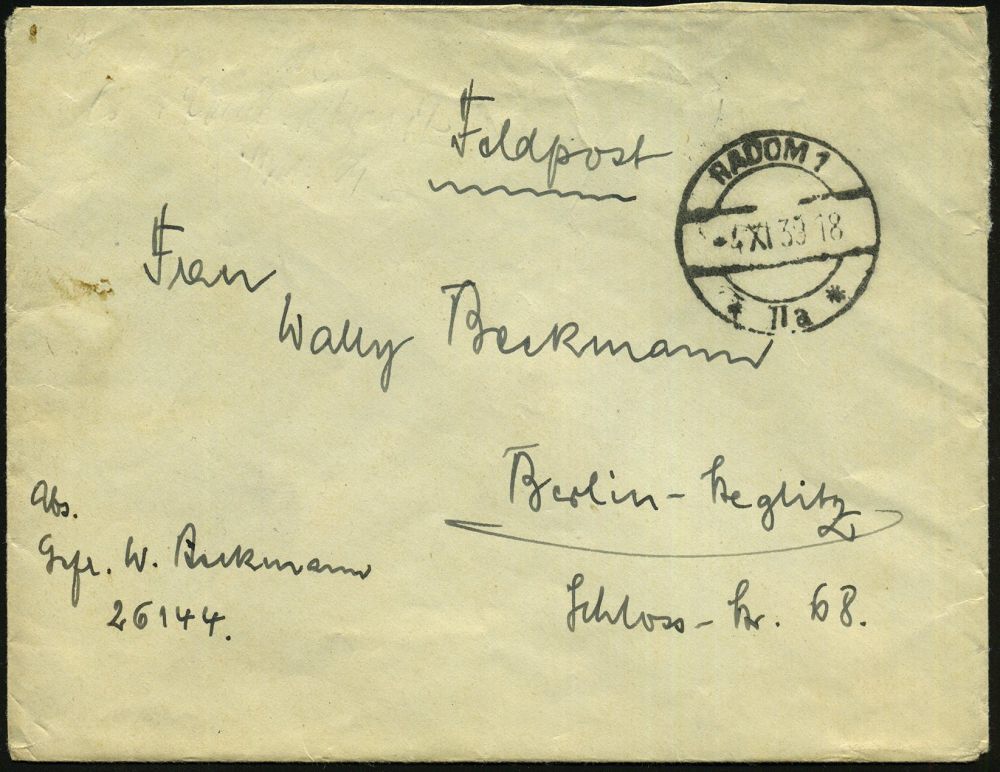 Feldpost
RADOM 1
-4 XI 39 18
* IIa *
Frau
Wally Beckmann
Berlin-Steglitz
Schloss-Str. 68.
Abs.
Gefr. W. Beckmann
26144.